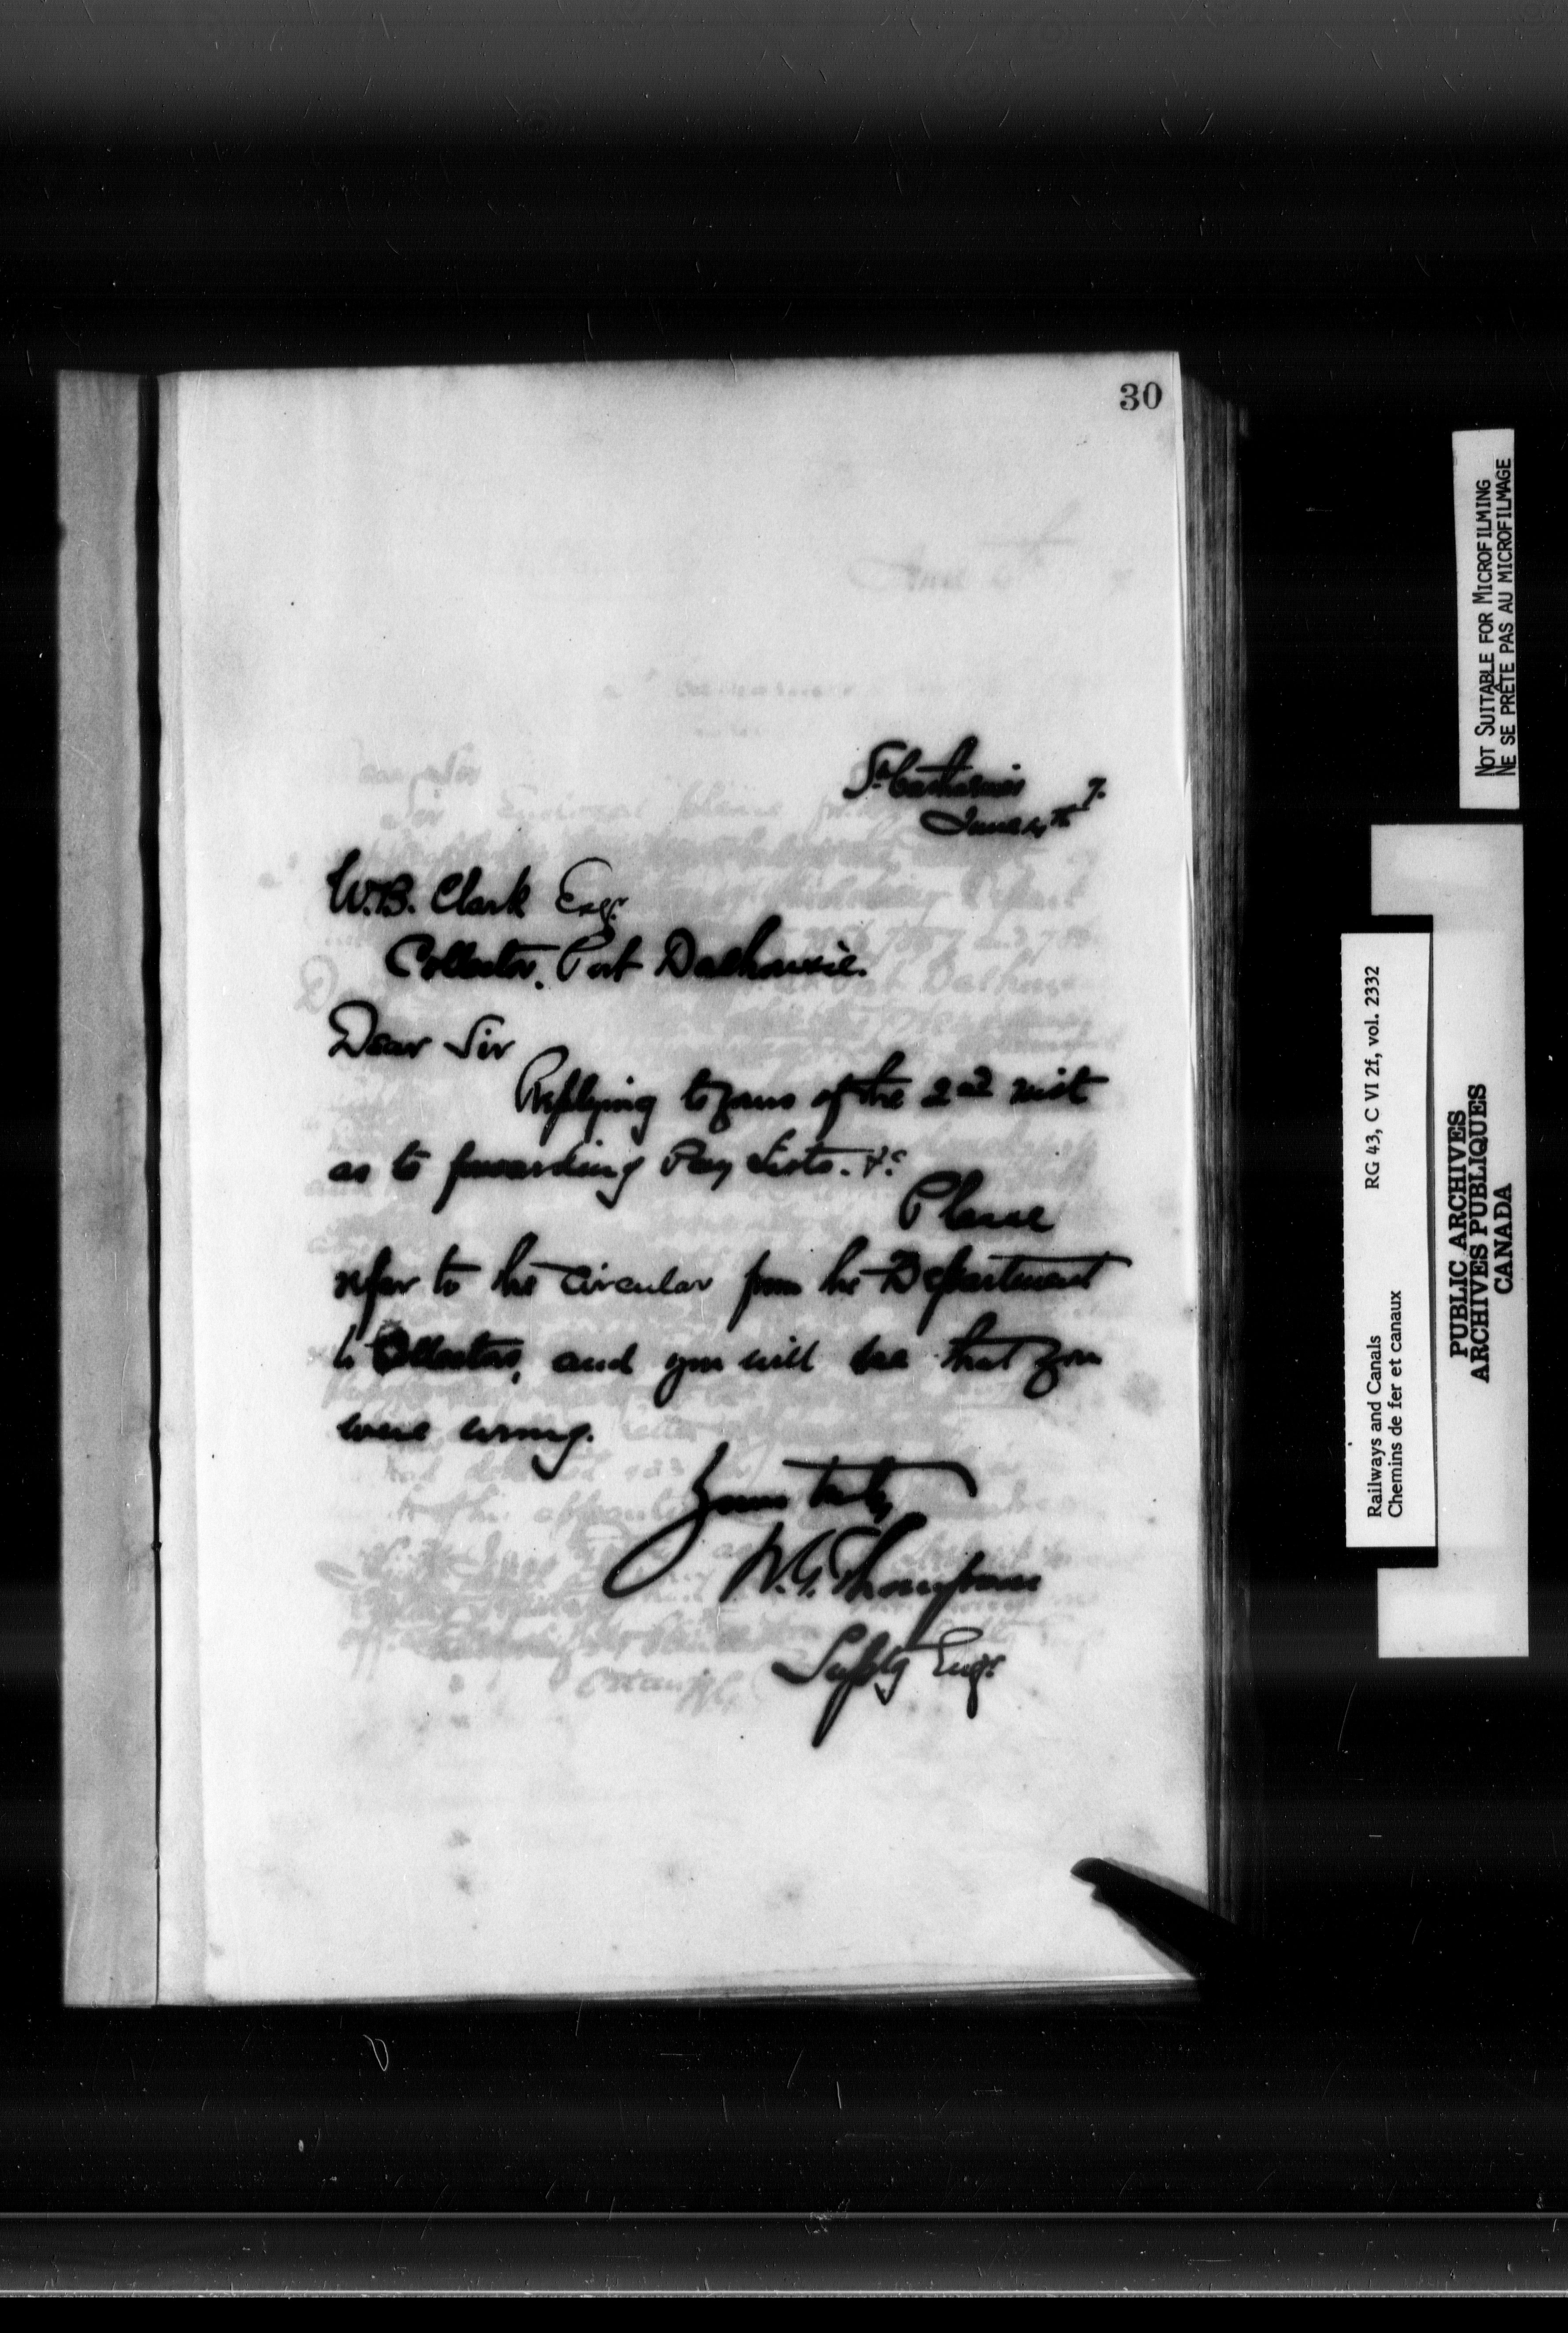 30
St Catharines
June 4th 7.
W.B. Clark Esqr
Collector, Port Dalhousie.
Dear Sir
Replying to yours of the 2nd inst
as to forwarding Pay Lists. &c
Please
refer to the Circular from the Department
to Collectors, and you will see that you
were wrong.
Yours truly
W.G. Thompson
Suptg Engr
NOT SUITABLE FOR MICROFILMING
NE SE PRÊTE PAS AU MICROFILMAGE
Railways and Canals RG 43, C VI 2f, vol. 2332
Chemins de fer et canaux
PUBLIC ARCHIVES
ARCHIVES PUBLIQUES
CANADA